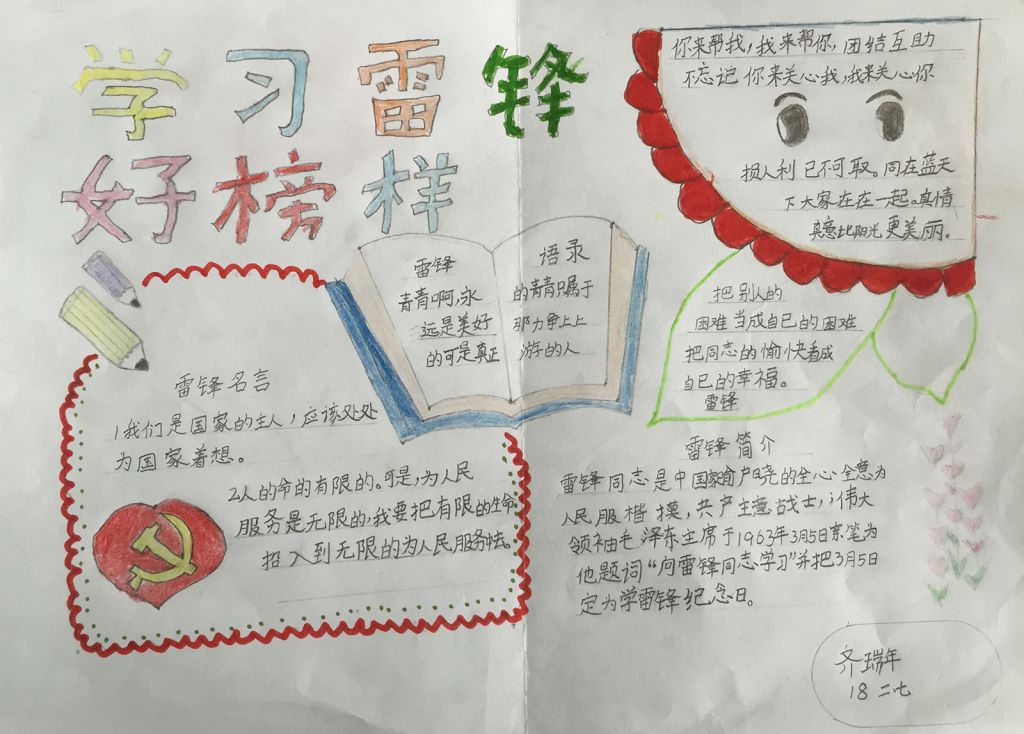 学习雷锋
好榜样
你来帮我，我来帮你，团结互助
不忘记你来关心我，我来关心你
损人利已不可取。同在蓝天
下大家在在一起。真情
真意比阳光更美丽。
雷锋
青青啊，永
远是美好
的可是真正
语录
的青青只属于
那力争上上
游的人
把别人的
困难当成自已的困难
把同志的愉快看成
自已的幸福。
雷锋
雷锋名言
1我们是国家的主人，应该处处
为国家着想。
2人的命的有限的。可是，为人民
服务是无限的，我要把有限的生命
招入到无限的为人民服务去。
雷锋简介
雷锋同志是中国家俞户晓的全心全意为
人民服楷摸，共产主意战士，伟大
领袖毛泽东主席于1963年3月5日亲笔为
他题词“向雷锋同志学习”并把3月5日
定为学雷锋纪念日。
齐瑞年
18 二七